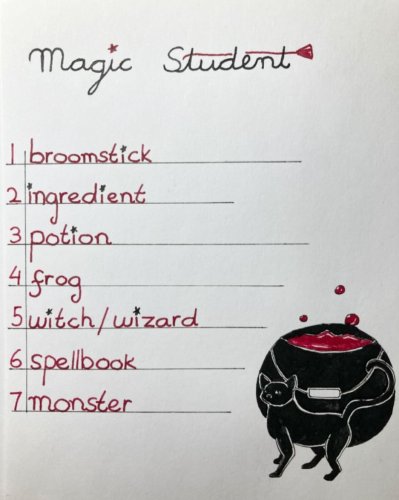 Magic Student
1 broomstick
2 ingredient
3 potion
4 frog
5 witch/wizard
6 spellbook
7 monster